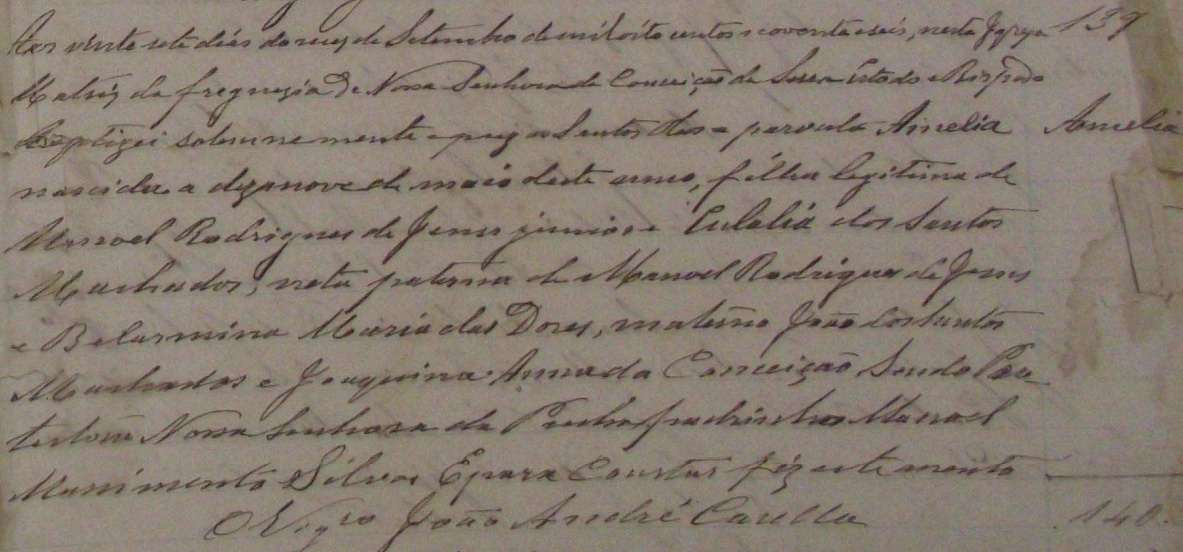 Aos vinte sete dias do mez de Setembro de mil oito centos noventa e seis, nesta Igreja 139
Matriz da freguezia de Nossa Senhora da Conceição da Serra Estado e Bispado
baptizei solemnemente e puz os Santos Oleos a parvula Amelia Amelia
nascida a dezanove de maio deste anno, filha legitima de
Manoel Rodrigues de Jesus junior e Eulalia dos Santos
Machados, neta paterna de Manoel Rodrigues de Jesus
e Belarmina Maria das Dores, materno João dos Santos
Machados e Joaquina Anna da Conceição Sendo Pro-
tectora Nossa Senhora da Penha padrinho Manoel
Silva E para constar fiz este assento
O Vigro João André Casella 140.